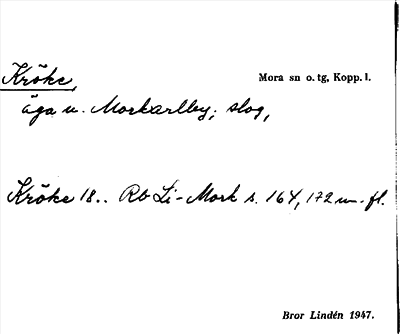 Kröke, Mora sn o. tg, Kopp. l.
äga u. Morkarlby; slog,
Kröke 18.. Rb Li-Mork s. 164, 172 m. fl.
Bror Lindén 1947.